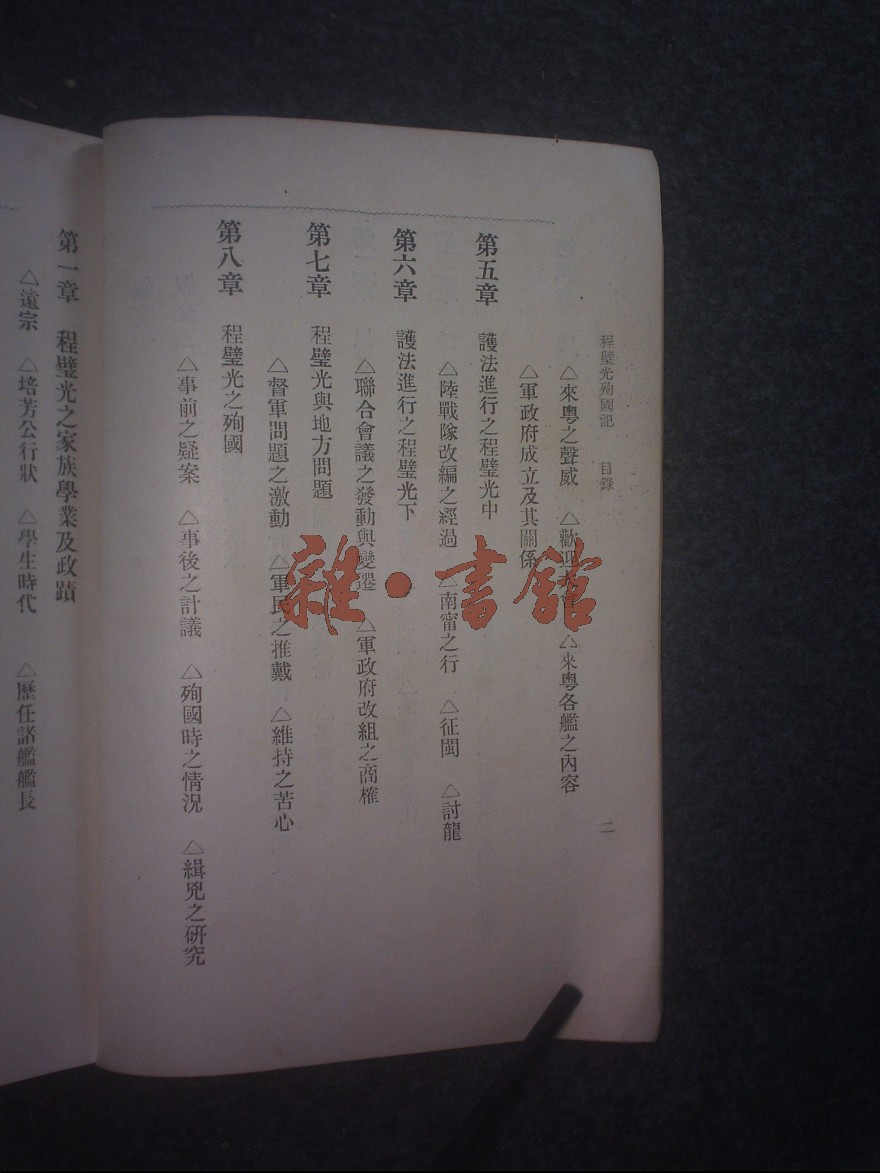 程璧光殉國記　目錄　二
△來粵之聲威　△歡迎大會　△來粵各艦之內容
△軍政府成立及其關係
第五章　護法進行之程璧光中
△陸戰隊改編之經過　△南甯之行　△征閩　△討龍
第六章　護法進行之程璧光下
△聯合會議之發動與變遷　△軍政府改組之商榷
第七章　程璧光與地方問題
△督軍問題之激動　△軍民之推戴　△維持之苦心
第八章　程璧光之殉國
△事前之疑案　△事後之計議　△殉國時之情況　△緝兇之研究
第一章　程璧光之家族學業及政蹟
△遠宗　△培芳公行狀　△學生時代　△歷任諸艦艦長
雜·書館